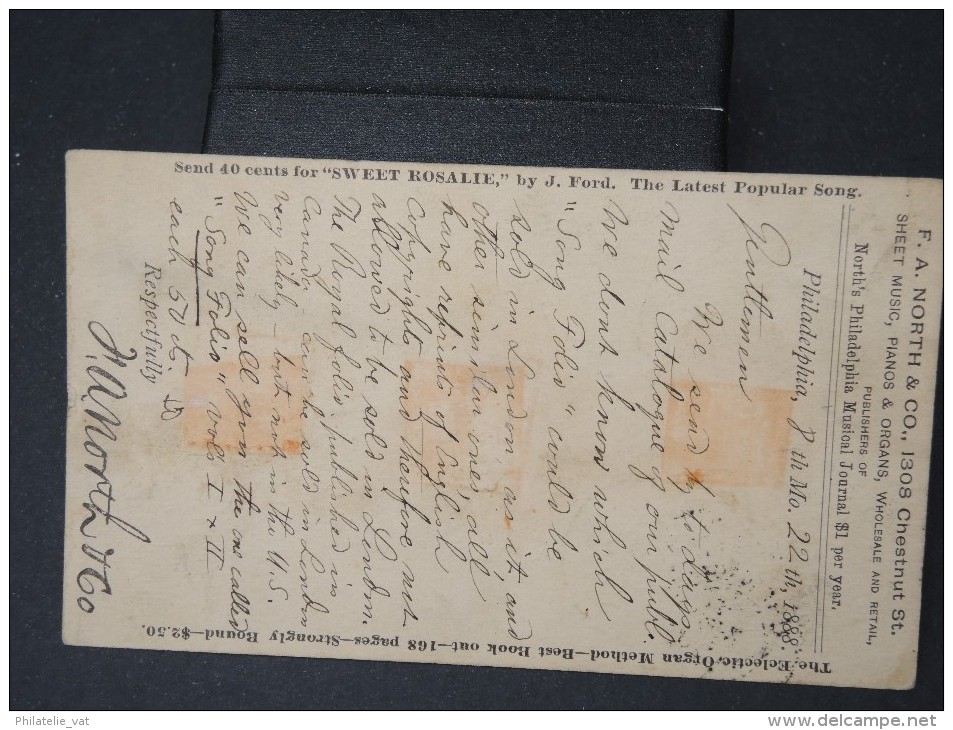 F. A. NORTH & CO., 1308 Chestnut St.
SHEET MUSIC, PIANOS & ORGANS, WHOLESALE AND RETAIL,
PUBLISHERS OF
North's Philadelphia Musical Journal $1 per year.
Philadelphia, 8th Mo. 22th, 1888.
Gentlemen
We send by to days
mail Catalogue of our publ.
We dont know which
"Song Folio" could be
sold in London as it and
other similar ones, all
have reprints of English
copyrights and therefore not
allowed to be sold in London.
The Royal folio published in
Canada can be sold in London
very likely — but not in the U.S.
We can sell you the one called
"Song Folio" vols I & II
each 50 cts.
Respectfully
F. A. North & Co
Send 40 cents for "SWEET ROSALIE," by J. Ford. The Latest Popular Song.
The Eclectic Organ Method—Best Book out—168 pages—Strongly Bound—$2.50.
Philatelie_vat
www.delcampe.net